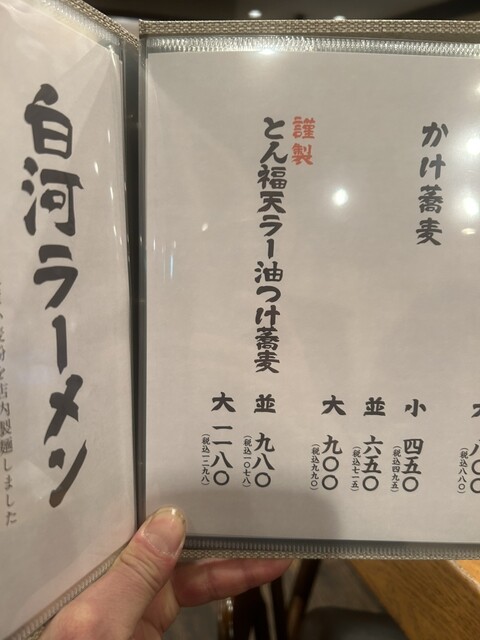 かけ蕎麦
小 四五〇
(税込四九五)
並 六五〇
(税込七一五)
大 九〇〇
(税込九九〇)
謹製
とん福天ラー油つけ蕎麦
並 九八〇
(税込一〇七八)
大 一一八〇
(税込一二九八)
白河ラーメン
を店内製麺しました